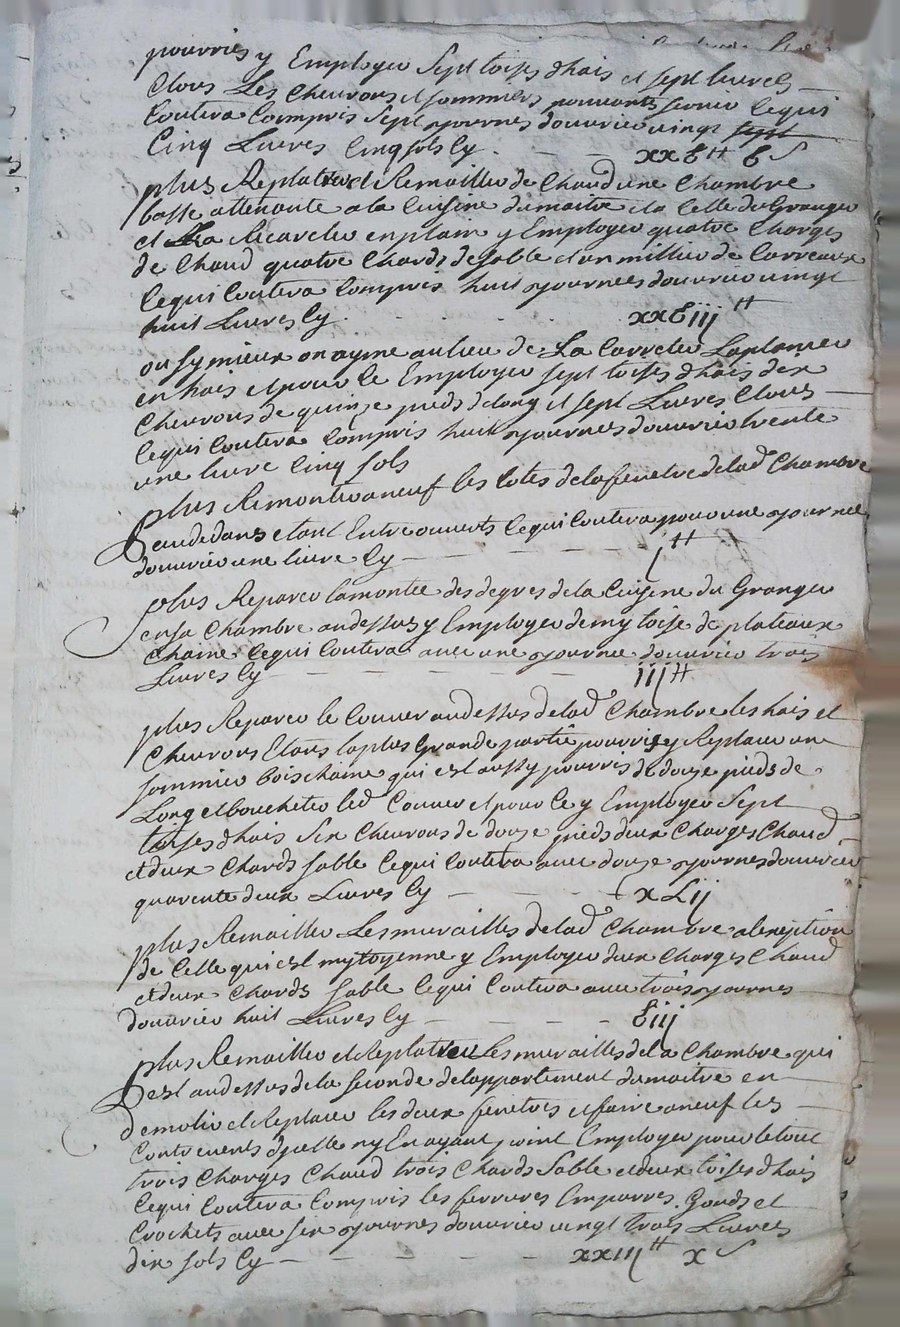 pourries y Employer Sept toises d'hais et sept livres
Clous Les Chevrons et sommiers pouvants servir Cequi
Coutera Compris Sept journes douvrier vingt sept
Cinq Livres Cinq sols Cy - - xxv ₶ v s
plus Replatrer et Remailler de Chaud une Chambre
basse attenante a la Cuisine du maitre et a Celle du Granger
et La Recarreler en plain y Employer quatre Charges
de Chaud quatre Chards de Sable et un millier de Carreaux
Cequi Coutera Compris huit journees douvrier vingt
huit Livres Cy . . . . xxviij ₶
ou sy mieux on ayme au lieu de La Carreler Laplancher
en hais et pour Ce Employer sept toises d'hais dix
Chevrons de quinze pieds de long et sept Livres Clous
Cequi Coutera Compris huit journees douvrier trente
une livre Cinq sols
plus Remonter a neuf les Cotes de la fenetre de lad Chambre
au dedans etant Entreouverts Cequi Coutera pour une journee
douvrier une livre Cy - - - j ₶
plus Reparer la montee des degres de la Cuisine du Granger
en sa Chambre au dessus y Employer demy toise de plateaux
Chaine Cequi Coutera avec une journee douvrier trois
Livres Cy - - - - iij ₶
plus Reparer le Couver au dessus de lad Chambre les hais et
Chevrons Etans la plus Grande partie pourris y Replacer un
sommier bois chaine qui est aussy pourres de douze pieds de
Long et boucheter led Couver et pour Ce y Employer Sept
toises d'hais Six Chevrons de douze pieds deux Charges Chaud
et deux Chards sable Cequi Coutera avec douze journes douvrier
quarente deux Livres Cy - - - xLij
plus Remailler Les murailles de lad Chambre a lexeption
de Celle qui est mytoyenne y Employer deux Charges Chaud
et deux Chards sable Cequi Coutera avec trois journes
douvrier huit Livres Cy - - - viij
plus Remailler et Replatrer Les murailles de la Chambre qui
est au dessus de la seconde de lappartement du maitre en
demolir et Replacer les deux fenetres et faire a neuf les
Contrevents d'jcelle ny En ayant point Employer pour le tout
trois Charges Chaud trois Chards Sable et deux toises d'hais
Cequi Coutera Compris les ferrures Emparres Gonds et
Crochets avec six journes douvrier vingt trois Livres
dix sols Cy - - - - xxiij ₶ x s